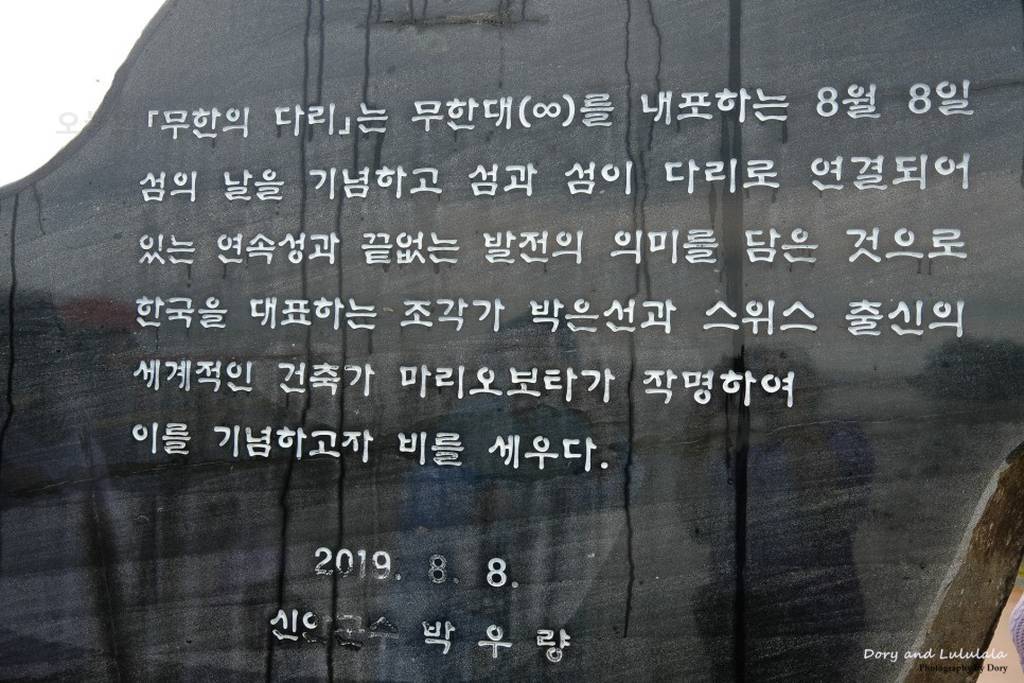 「무한의 다리」는 무한대(∞)를 내포하는 8월 8일
섬의 날을 기념하고 섬과 섬이 다리로 연결되어
있는 연속성과 끝없는 발전의 의미를 담은 것으로
한국을 대표하는 조각가 박은선과 스위스 출신의
세계적인 건축가 마리오보타가 작명하여
이를 기념하고자 비를 세우다.
2019. 8. 8.
신안군수 박우량
Dory and Lululala
Photography by Dory